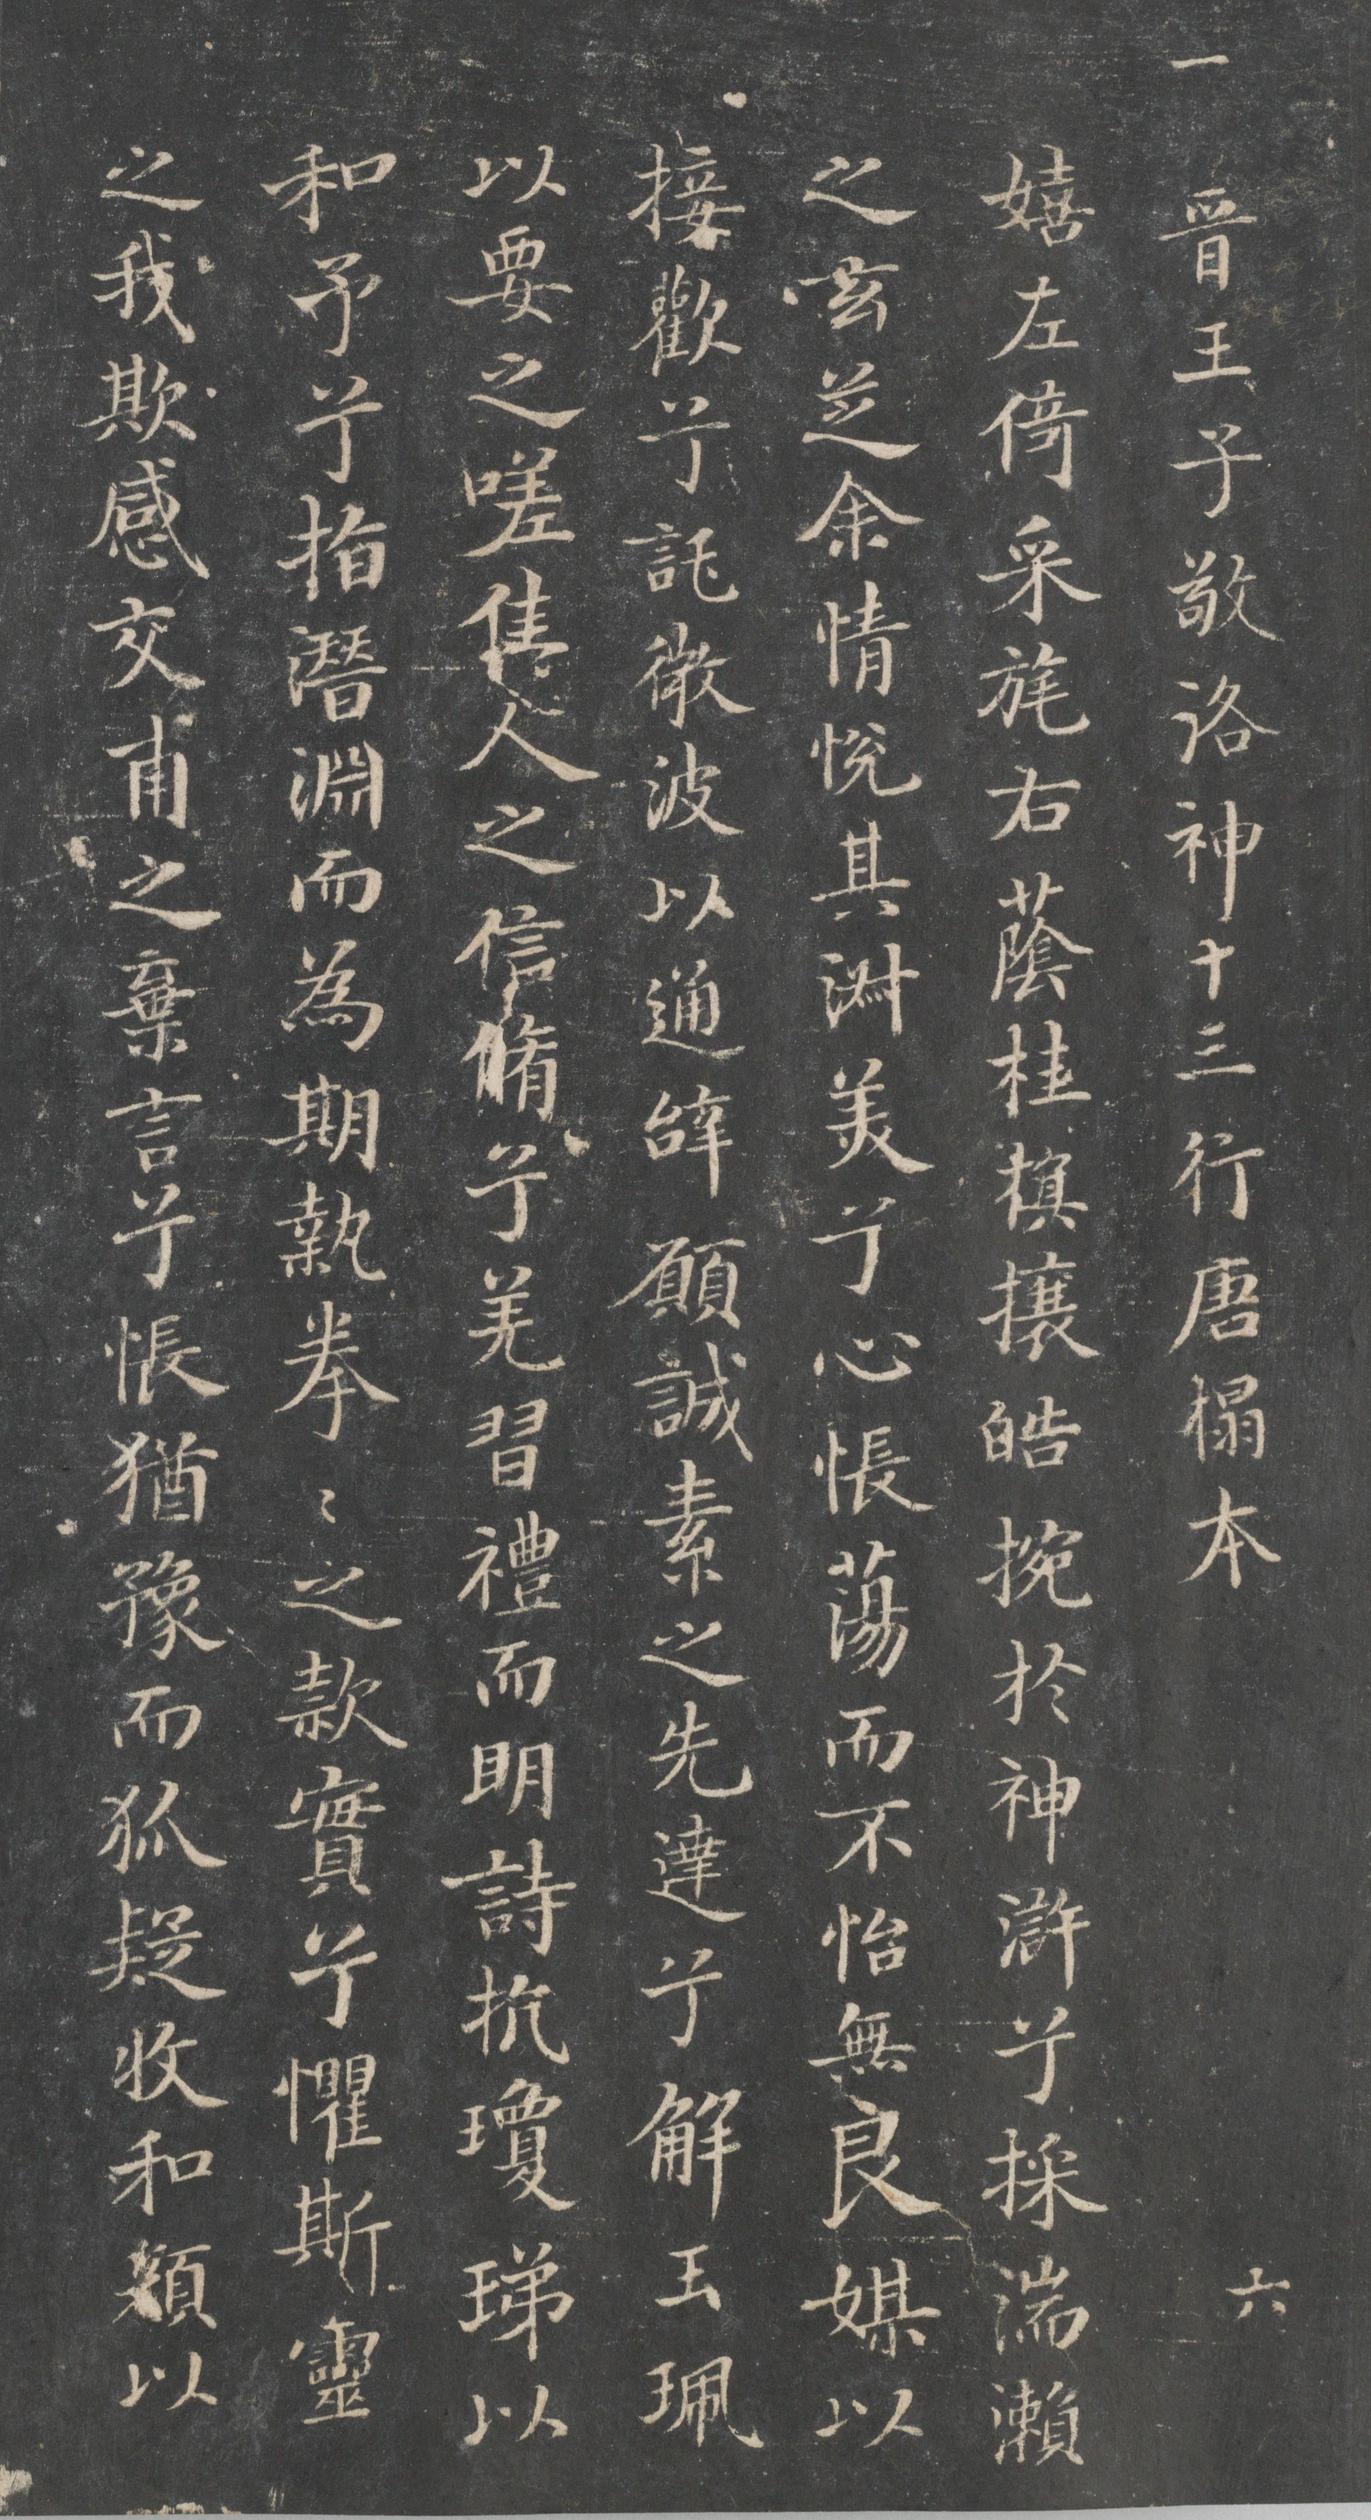 一
晉王子敬洛神十三行唐榻本
六
嬉左倚采旄右蔭桂旗攘皓捥於神滸兮採湍瀨
之玄芝余情悅其淑美兮心悵蕩而不怡無良媒以
接歡兮託微波以通辞願誠素之先達兮解玉珮
以要之嗟佳人之信脩兮羌習禮而明詩抗瓊珶以
和予兮指潛淵而為期執拳〻之款實兮懼斯靈
之我欺感交甫之棄言兮悵猶豫而狐疑收和顏以